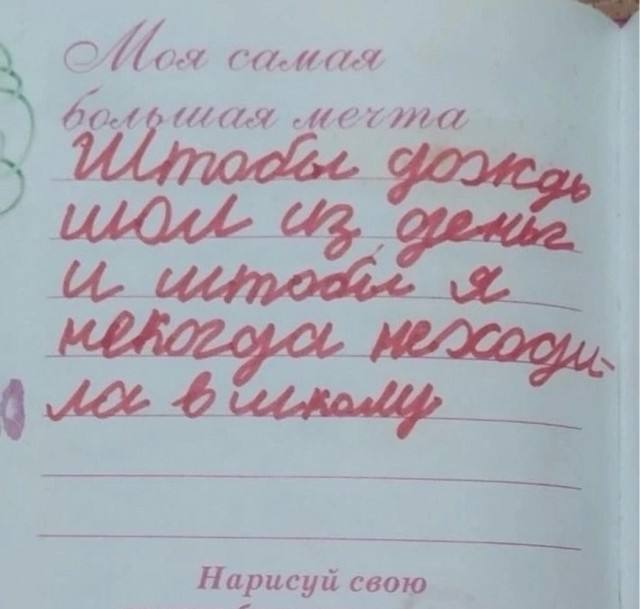 Моя самая
большая мечта
Штобы дождь
шол из деньг
и штобы я
некогда неходи-
ла в школу
Нарисуй свою